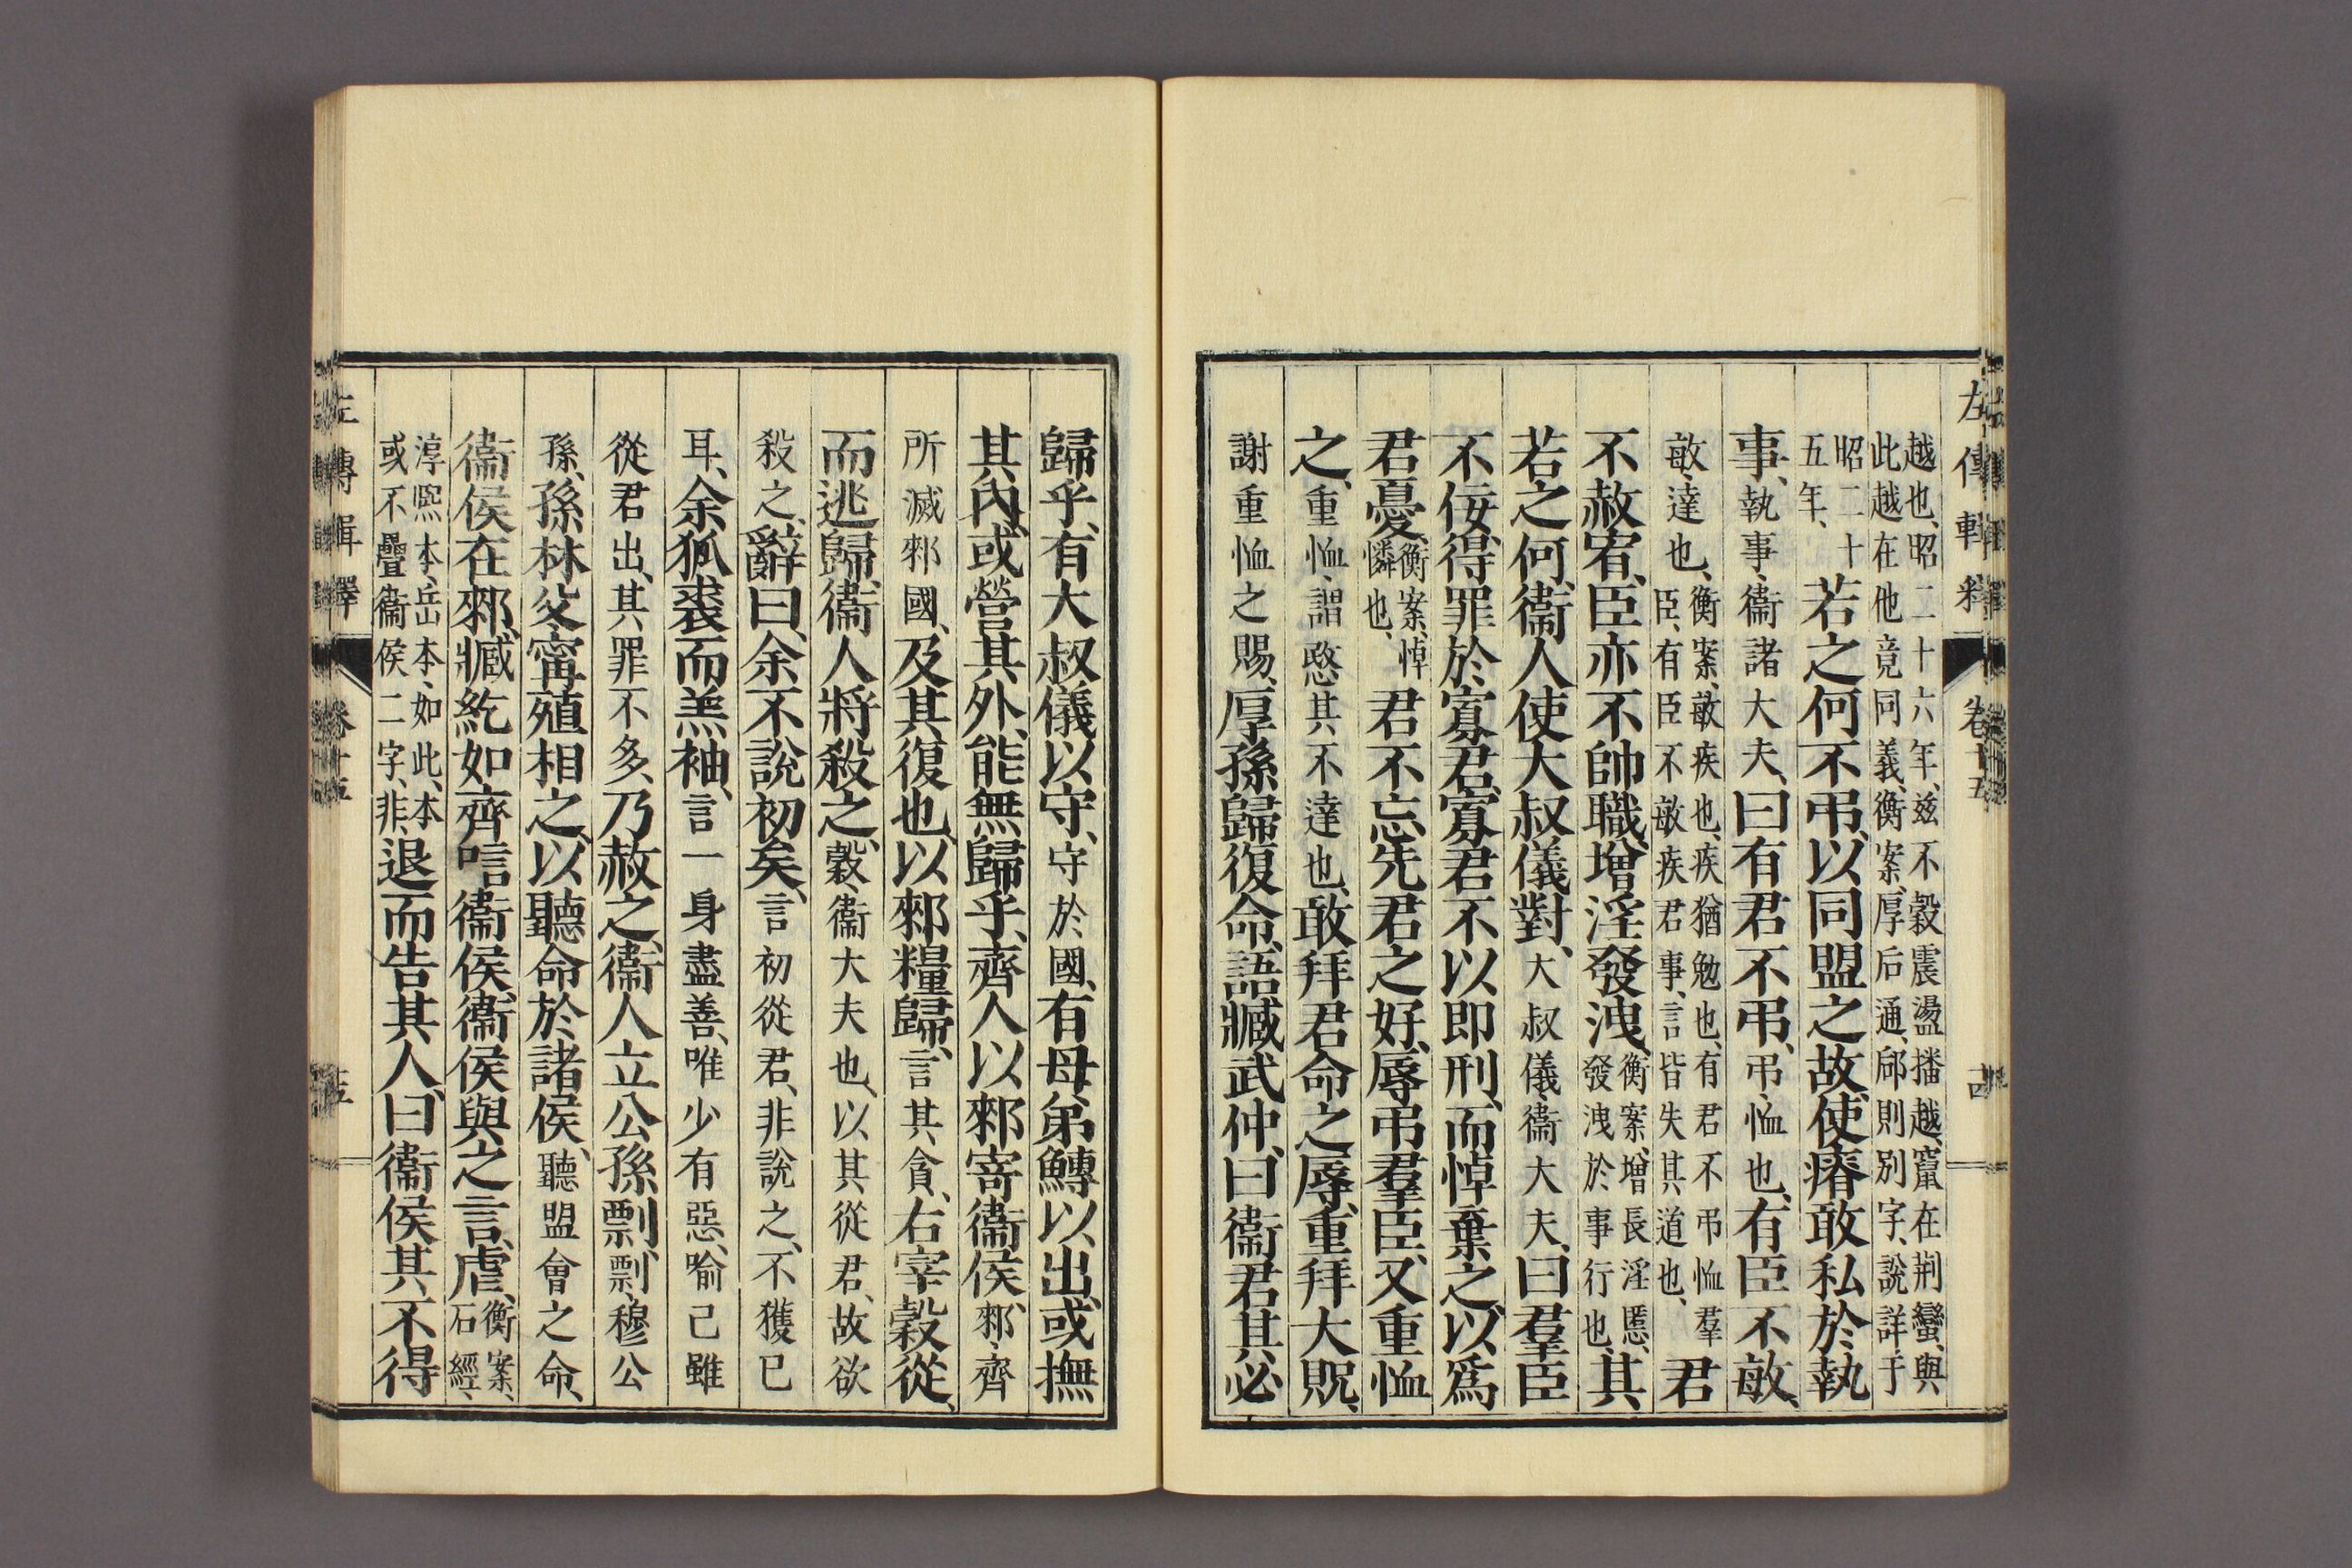 左傳輯釋 卷十五 十四
越也、昭二十六年、玆不穀震盪播越、竄在荆蠻、與
此越在他竟同義、衡案、厚后通、郈則別字、說詳于
昭二十
五年、
若之何不弔、以同盟之故、使瘠敢私於執
事、執事、衞諸大夫、曰有君不弔、弔、恤也、有臣不敏、
敏、達也、衡案、敏疾也、疾猶勉也、有君不弔恤羣
臣、有臣不敏疾君事、言皆失其道也、君
不赦宥、臣亦不帥職、增淫發洩、衡案、增長淫慝、
發洩於事行也、其
若之何、衞人使大叔儀對、大叔儀、衞大夫、曰羣臣
不佞、得罪於寡君、寡君不以即刑、而悼棄之、以爲
君憂、衡案、悼
憐也、君不忘先君之好、辱弔羣臣、又重恤
之、重恤、謂愍其不達也、敢拜君命之辱、重拜大貺、
謝重恤之賜、厚孫歸復命、語臧武仲、曰衞君其必
歸乎、有大叔儀以守、守於國、有母弟鱄以出、或撫
其內、或營其外、能無歸乎、齊人以郲寄衞侯、郲、齊
所滅郲國、及其復也、以郲糧歸、言其貪、右宰穀從、
而逃歸、衞人將殺之、穀、衞大夫也、以其從君、故欲
殺之、辭曰、余不說初矣、言初從君、非說之、不獲已
耳、余狐裘而羔袖、言一身盡善、唯少有惡、喻己雖
從君出、其罪不多、乃赦之、衞人立公孫剽、剽、穆公
孫、孫林父甯殖相之、以聽命於諸侯、聽盟會之命、
衞侯在郲、臧紇如齊唁衞侯、衞侯與之言虐、衡案、
石經、
淳熙本、岳本、如此、本
或不疊衞侯二字、非、退而告其人、曰衞侯其不得
左傳輯釋 卷十五 十五